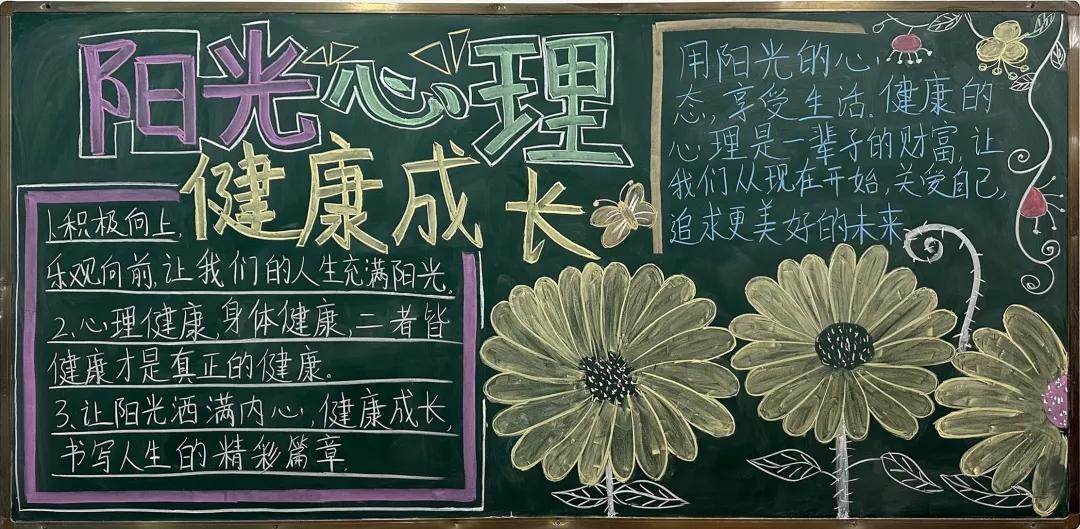 阳光心理
健康成长
1.积极向上,
乐观向前,让我们的人生充满阳光.
2.心理健康,身体健康,二者皆
健康才是真正的健康.
3.让阳光洒满内心,健康成长,
书写人生的精彩篇章.
用阳光的心
态,享受生活.健康的
心理是一辈子的财富,让
我们从现在开始,关爱自己,
追求更美好的未来